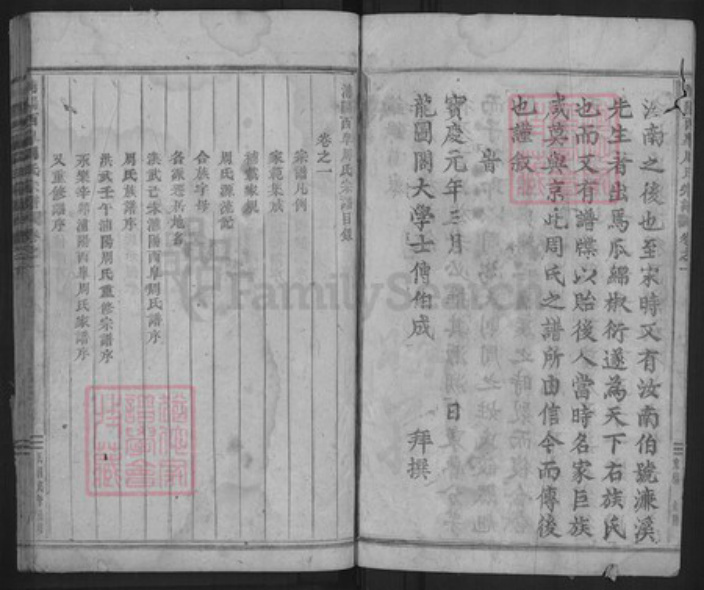 汝南之後也至宋時又有汝南伯號濂溪
先生者出焉瓜綿椒衍遂為天下右族氏
也而又有譜牒以貽後人當時名家巨族
咸莫與京此周氏之譜所由信今而傳後
也謹叙
旹
寶慶元年三月 日
龍圖閣大學士傅伯成 拜撰
浦陽西皐周氏宗譜目錄
卷之一
宗譜凡例
家範集成
周氏源流記
合族字母
各派遷居地名
洪武己未浦陽西皐周氏譜序
周氏族譜序
洪武壬午浦陽周氏重修宗譜序
永樂辛卯浦陽西皐周氏家譜序
又重修譜序
FamilySearch